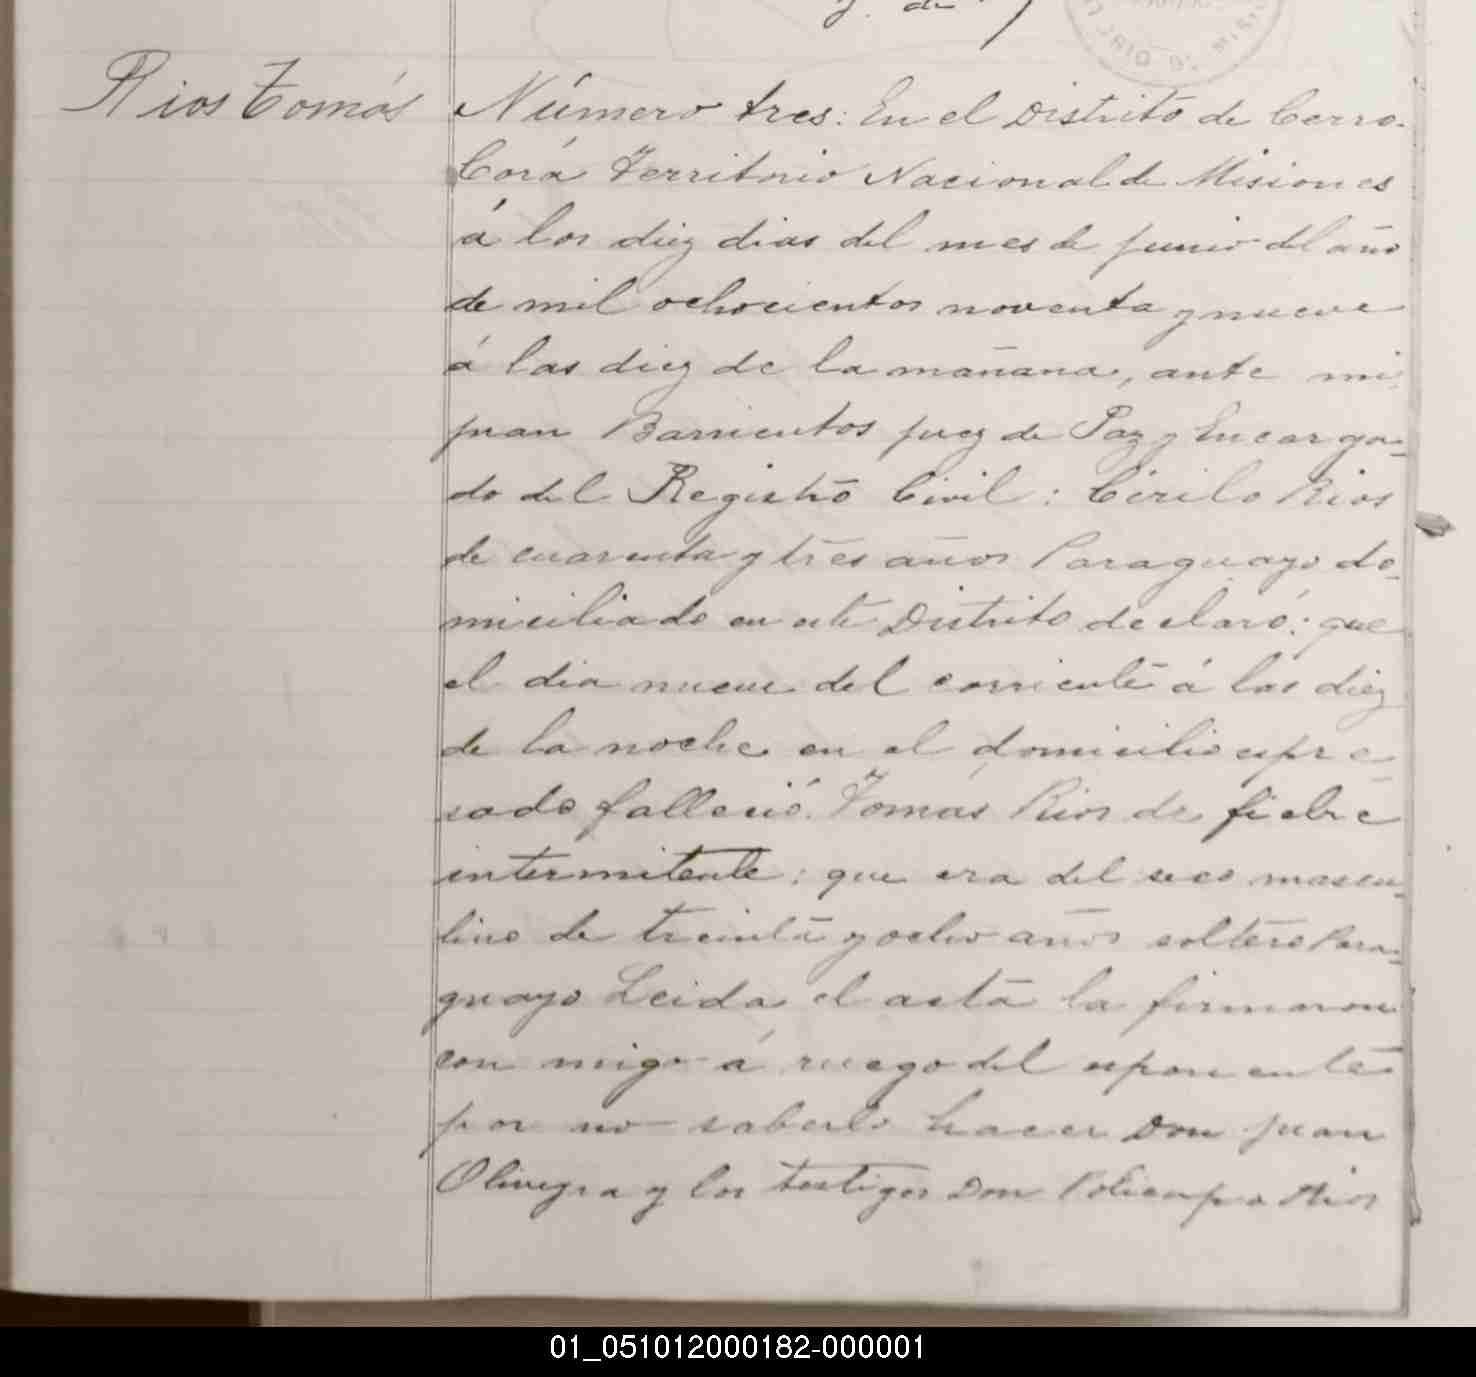 Rios Tomás
Número tres: En el Distrito de Cerro-
Corá Territorio Nacional de Misiones
á los diez dias del mes de junio del año
de mil ochocientos noventa y nueve
á las diez de la mañana, ante mi
juan Barrientos juez de Paz y Encarga-
do del Registro Civil: Cirilo Rios
de cuarenta y tres años Paraguayo do-
miciliado en este Distrito declaró: que
el dia nueve del corriente á las diez
de la noche en el domicilio espre-
sado falleció. Tomás Rios de fiebre
intermitente: que era del seco mascu-
lino de treinta y ocho años soltero Para-
guayo Leida el acta la firmaron
con migo á ruego del esponente
por no saberlo hacer Don juan
Oliveyra y los testigos Don Policarpo Rios
01_051012000182-000001